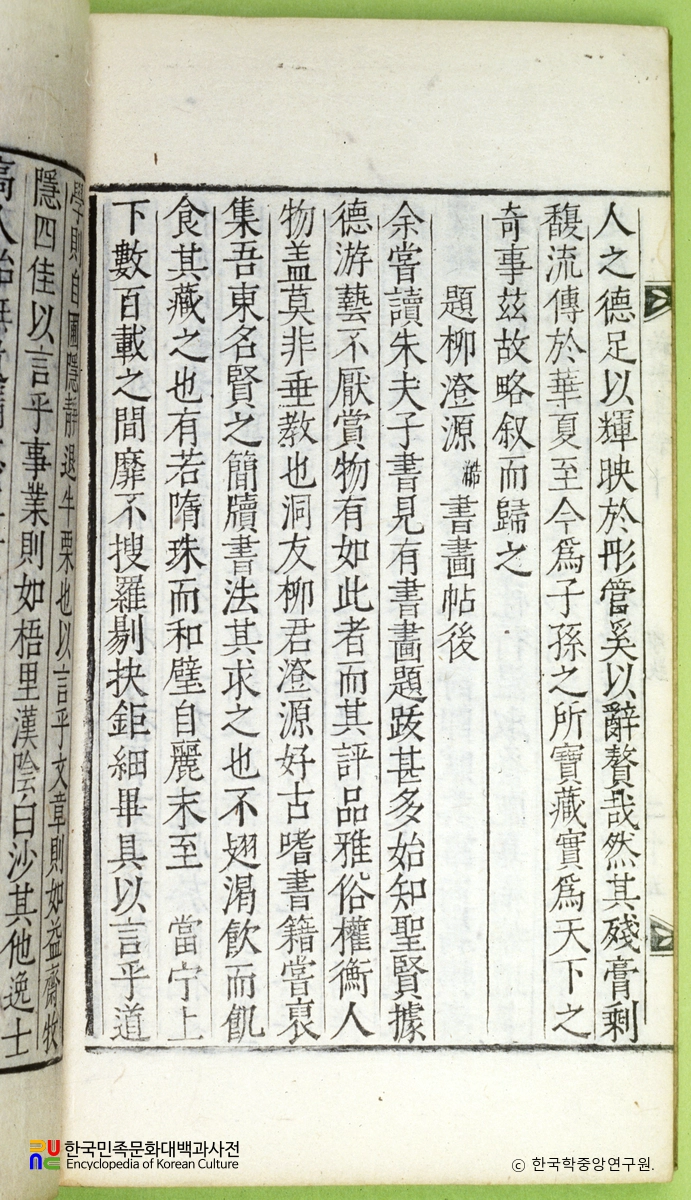 人之德足以輝映於彤管奚以辭贅哉然其殘膏剩
馥流傳於華夏至今爲子孫之所寶藏實爲天下之
奇事玆故略叙而歸之
題柳澄源書畵帖後
余嘗讀朱夫子書見有書畵題跋甚多始知聖賢據
德游藝不厭賞物有如此者而其評品雅俗權衡人
物盖莫非垂敎也洞友柳君澄源好古嗜書籍嘗裒
集吾東名賢之簡牘書法其求之也不翅渴飮而飢
食其藏之也有若隋珠而和璧自麗末至 當宁上
下數百載之間靡不搜羅剔抉鉅細畢具以言乎道
學則自圃隱靜退牛栗也以言乎文章則如益齋牧
隱四佳以言乎事業則如梧里漢陰白沙其他逸士
한국민족문화대백과사전
Encyclopedia of Korean Culture
ⓒ 한국학중앙연구원.